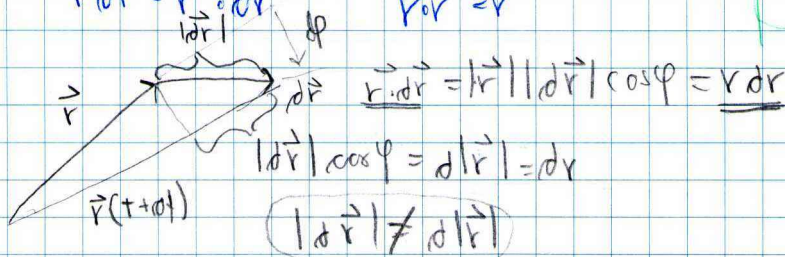 |d\vec{r}| dφ
\vec{r} d\vec{r} \vec{r}·d\vec{r} = |\vec{r}| |d\vec{r}| cosφ = r dr
|d\vec{r}| cosφ = d|\vec{r}| = dr
\vec{r}(t+dt)
|d\vec{r}| ≠ d|\vec{r}|